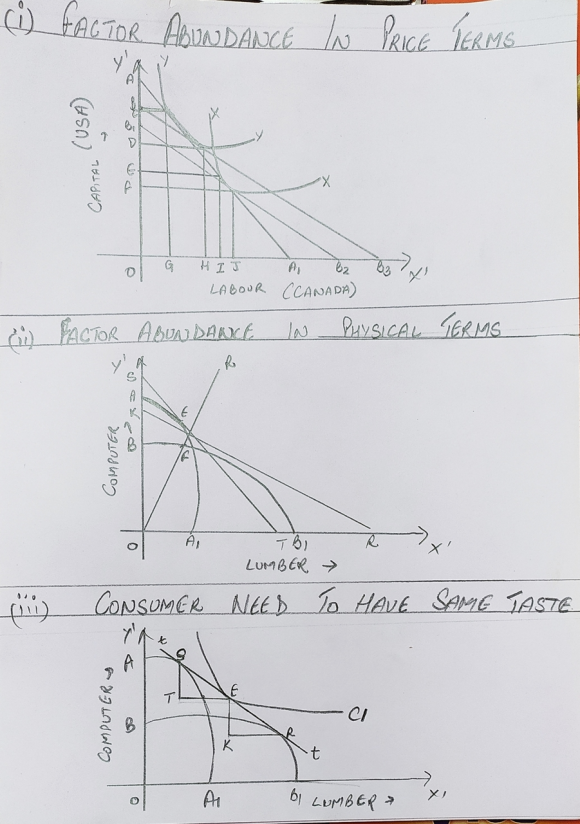 (i) FACTOR ABUNDANCE IN PRICE TERMS
Y'
Y
A
X
B1
D
Y
E
X
F
CAPITAL (USA) →
O
G
H
I
J
A1
B2
B3
X'
LABOUR (CANADA)
(ii) FACTOR ABUNDANCE IN PHYSICAL TERMS
Y'
R
S
A
E
R
B
F
COMPUTER →
O
A1
T
B1
R
X'
LUMBER →
(iii) CONSUMER NEED TO HAVE SAME TASTE
Y'
t
A
S
T
E
CI
B
K
R
t
COMPUTER →
O
A1
B1
LUMBER →
X'